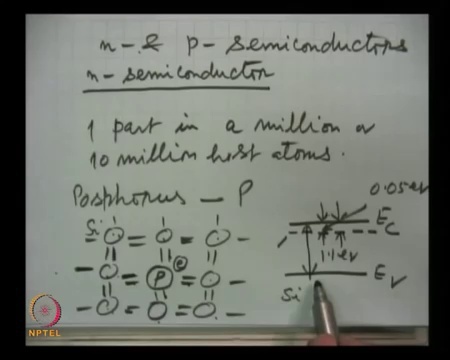 n- & p- semiconductors
n- semiconductor
1 part in a million or
10 million host atoms.
Posphorus - P
0.05 eV
Si
E_C
P e
1.1 eV
E_V
Si
NPTEL